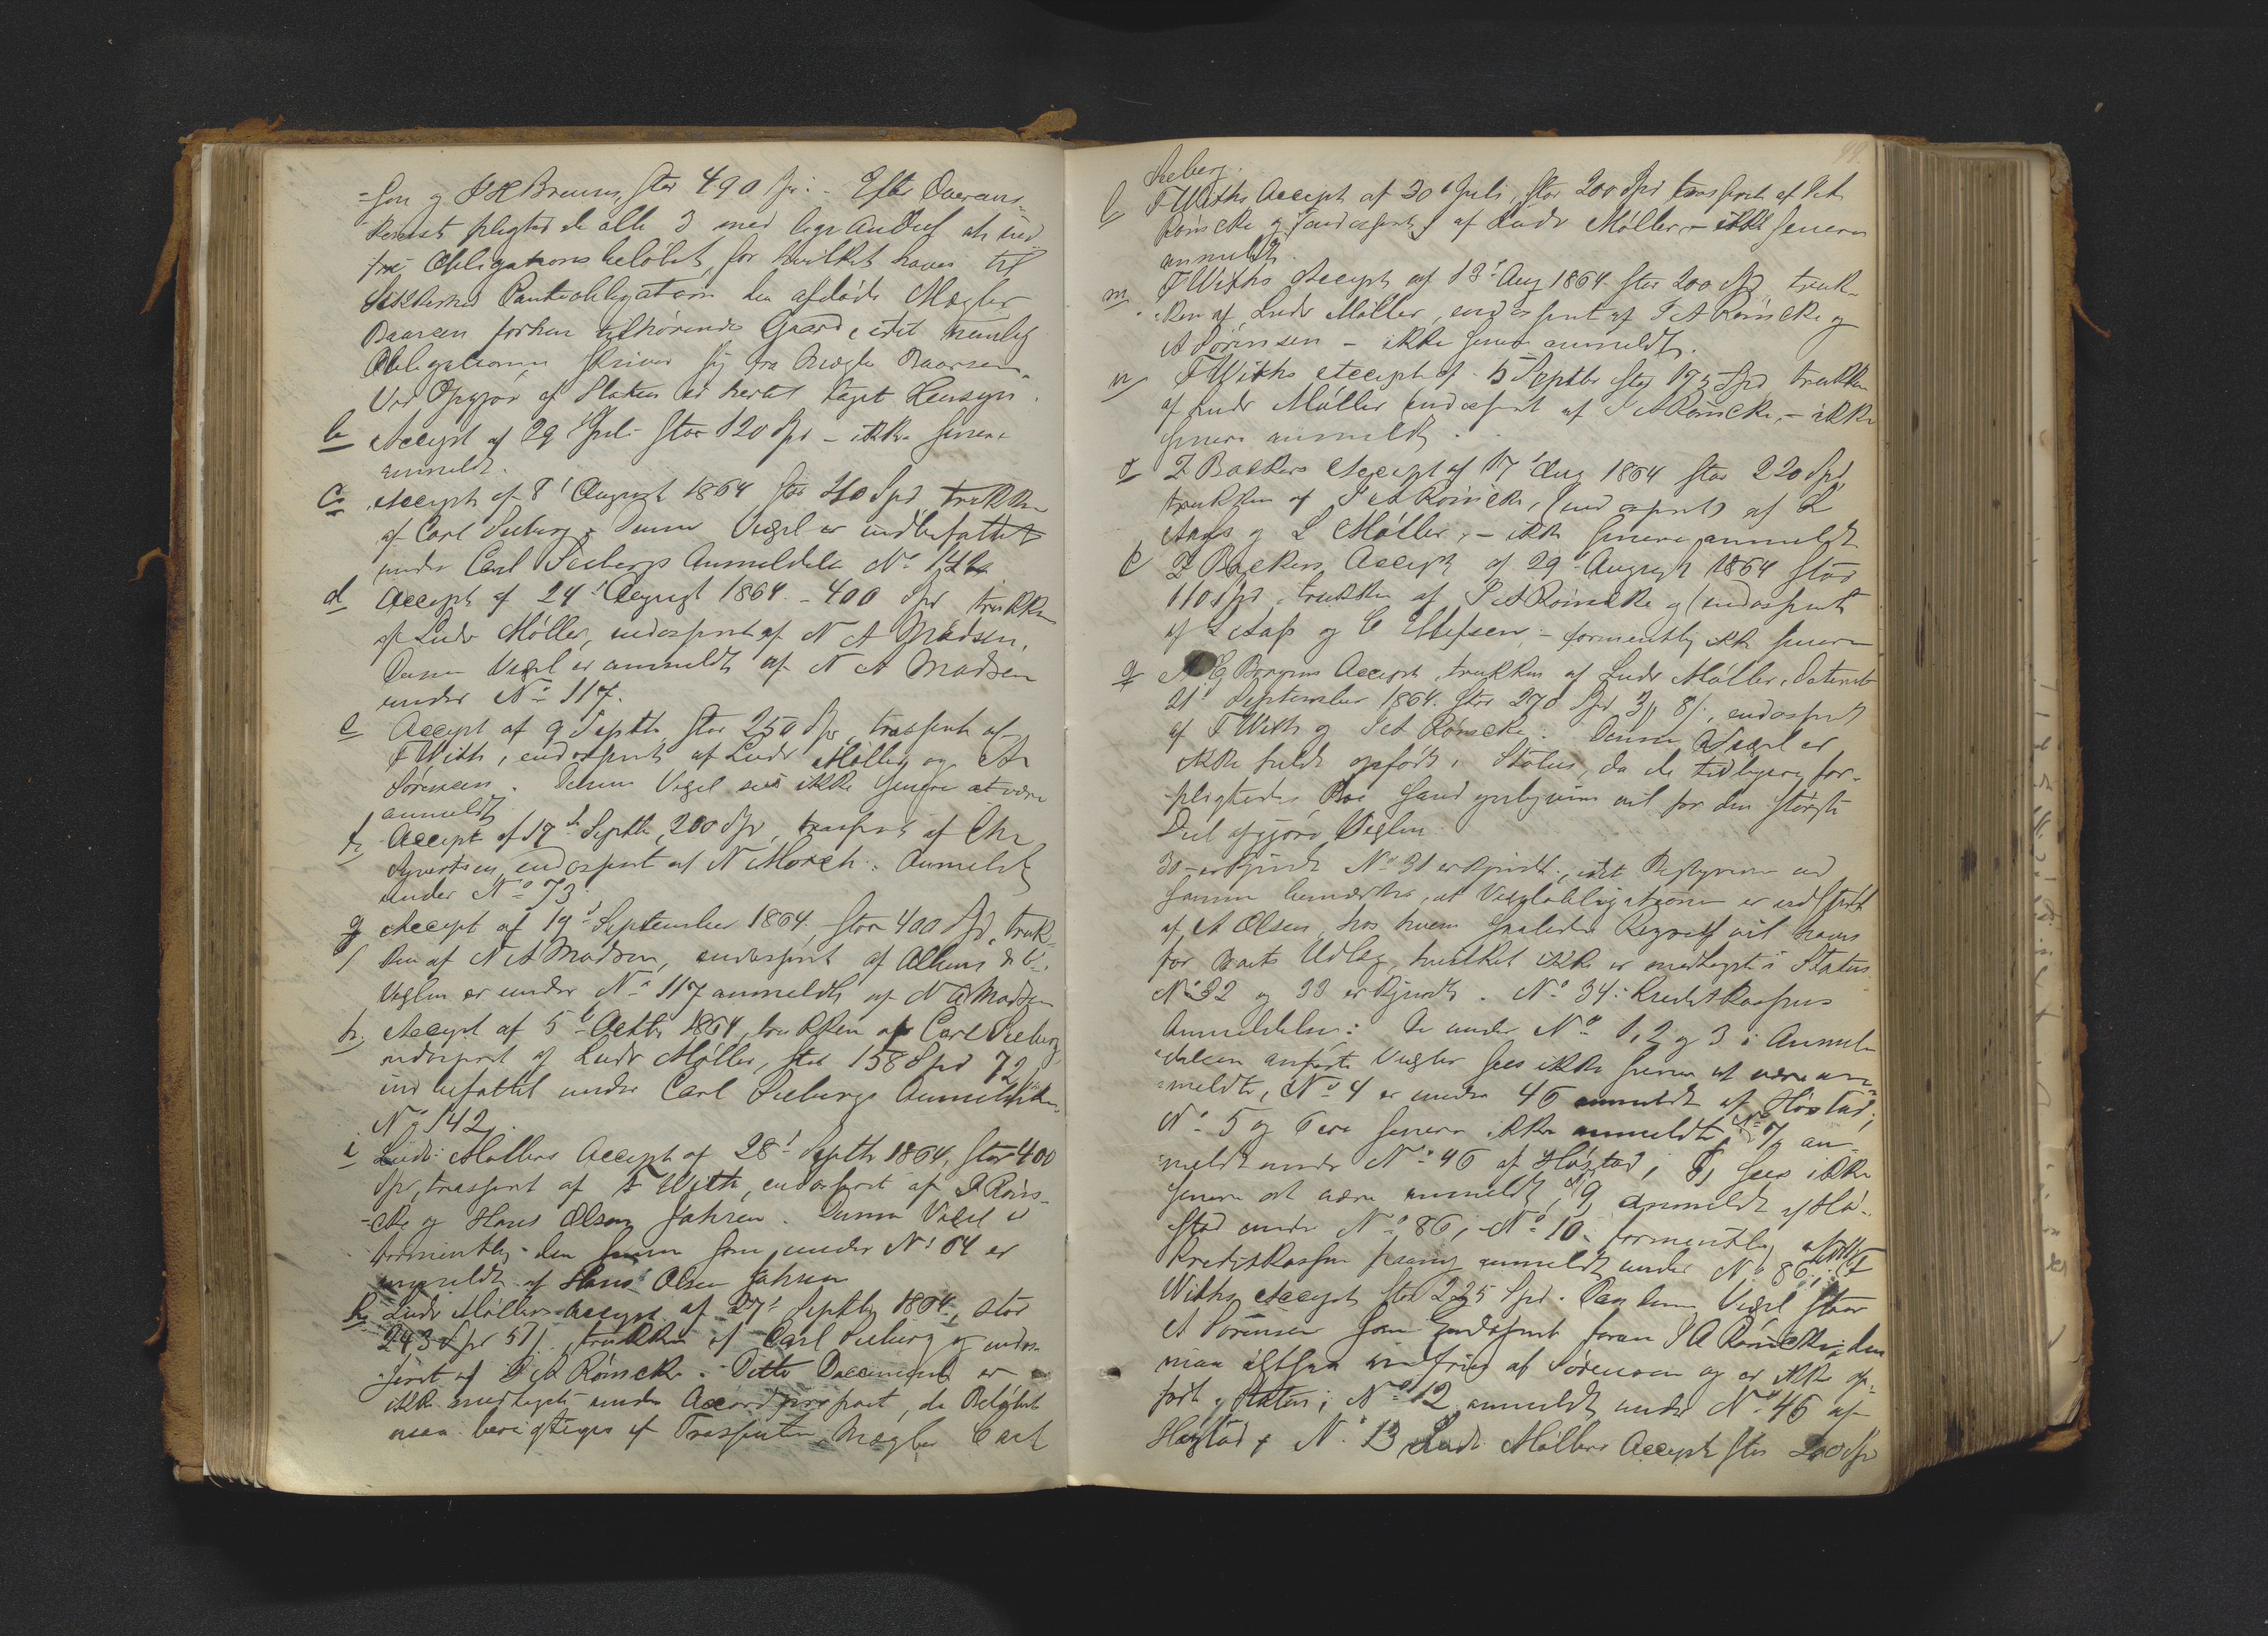 -sen og J H Bruuns, stor 490 Spd. - Efter Overens-
komst pligted de alle 3 med lige Andeel at ind-
fri Obligationsbeløbet, for hvilket haves til
Sikkerhed Panteobligation den afdøde Mægler
Baarsen forhen tilhørende Gaard, idet nemlig
Obligationen skriver sig fra Mægler Baarsen.
Ved Opgjør af Status er hertil taget Hensyn.
b Accept af 29 Juli stor 120 Spd - ikke senere
anmeldt.
c. Accept af 8d August 1864 stor 40 Spd trukken
af Carl Seeberg. Denne Vexel er indbefattet
under Carl Seebergs Anmeldelse No 142
d Accept af 24d August 1864. - 400 Spd trukken
af Ludv Møller, endosseret af N A Madsen.
Denne Vexel er anmeldt af N A Madsen
under No 117.
e Accept af 9 Septbr stor 250 Spd, trasseret af
F With, endosseret af Ludv Møller og A
Sørensen. Denne Vexel sees ikke senere at være
anmeldt
f. Accept af 19de Septbr, 200 Spd, trasseret af Chr
Syvertsen endosseret af N Morch. Anmeldt
under No 73.
g Accept af 19d September 1864. stor 400 Spd, truk-
ken af N A Madsen, endosseret af
Vexlen er under No 117 anmeldt af N A Madsen
h. Accept af 5te Octbr 1864, trukken af Carl Seeberg
endosseret af Ludv Møller, stor 158 Spd 72
indbefattet under Carl Seebergs Anmeldelse
No 142.
i Ludv. Møllers Accept af 28d Septbr 1864, stor 400
Spd, trasseret af F With, endosseret af J Röins-
-cke og Hans Olsen Jahren. Denne Vexel er
formentlig den samme som under No 64 er
anmeldt af Hans Olsen Jahren
k. Ludv Møllers Accept af 27d Septbr 1864, stor
243 Spd 57 , trukken af Carl Seeberg og endos-
seret af J A Röinscke. Dette Document er
ikke medtaget under Accordforslaget, da Beløbet
maa berigtiges af Trassenten Mægler Carl
99.
Seeberg.
l F Withs Accept af 30d Juli, stor 200 Spd trasseret af J A
Röinscke og endosseret af Ludv Møller - ikke senere
anmeldt.
m F Withs Accept af 13d Aug 1864. stor 200 Spd truk-
ken af Ludv Møller, endosseret af J A Röinscke og
A Sørensen - ikke senere anmeldt.
n F Withs Accept af 5 Septbr stor 175 Spd trukken
af Ludv Møller endosseret af J A Röinscke, - ikke
senere anmeldt.
o Z Backers Accept af 17d Aug 1864 stor 220 Spd,
trukken af J A Röinscke, endosseret af L
Aass og L Møller, - ikke senere anmeldt
p Z Backers Accept af 29 August 1864 stor
110 Spd, trukken af J A Röinscke og endosseret
af L Aass og C Ellefsen, - formentlig ikke senere
q Accept, trukken af Ludv Møller, dateret
21d September 1864. stor 270 Spd 3 8 , endosseret
af F With og J A Röinscke. Denne Vexel er
ikke fuldt opført i Status, da de tidligere for-
-pligtedes Boe sandsynligviis vil for den største
Deel afgjøre Vexlen.
30 erkjendt No 31 erkjendt, idet Bestyreren ved
samme bemærker, at Vexelobligationen er udstedt
af A Olsen, hos hvem saaledes Regress vil haves
for Boets Udlæg, hvilket ikke er medtaget i Status
No 32 og 33 erkjendt. No 34. Kreditkassens
Anmeldelse: De under No 1, 2 og 3 i Anmel-
delsen anførte Vexler sees ikke senere at være an-
meldt, No 4 er under 46 anmeldt af Høstad,
No 5 og 6 ere senere ikke anmeldt, No 7 an-
meldt under No 46 af Høstad, 8, sees ikke
senere at være anmeldt, 9, anmeldt af Hø-
stad under No 86, No 10. formentlig
Kreditkassen anmeldt under No 86, F
Withs Accept stor 225 Spd. Paa denne Vexel staar
A Sørensen som Endossent foran J A Röinscke; den
maa altsaa indfries af Sørensen og er ikke op-
ført i Status; No 12 anmeldt under No 46 af
Høstad, No 13 Ludv Møllers Accept stor 200 Spd